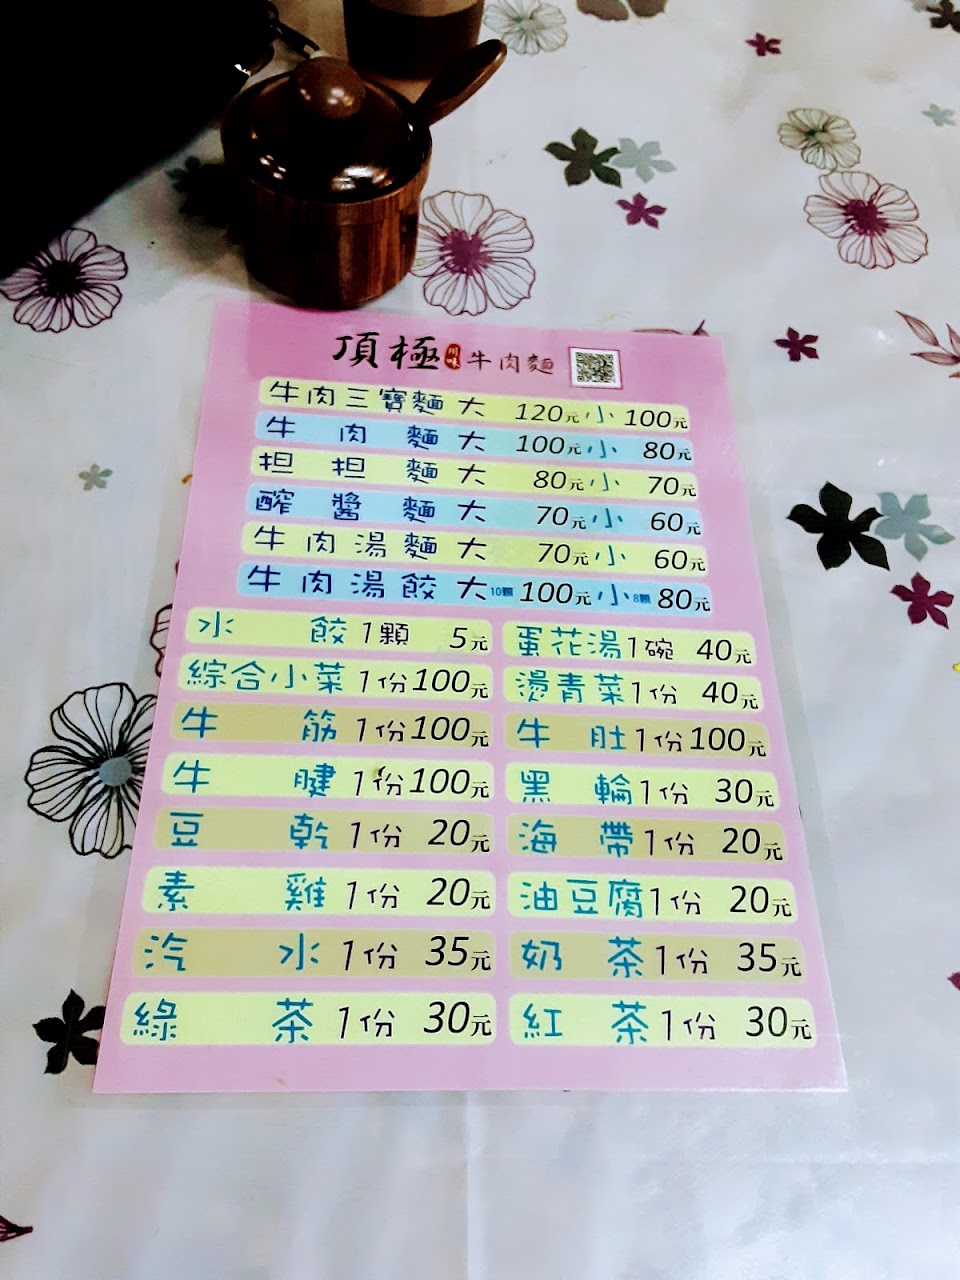 頂極川味牛肉麵
牛肉三寶麵 大 120元 小 100元
牛肉麵 大 100元 小 80元
担担麵 大 80元 小 70元
醡醬麵 大 70元 小 60元
牛肉湯麵 大 70元 小 60元
牛肉湯餃 大10顆 100元 小8顆 80元
水餃 1顆 5元 蛋花湯 1碗 40元
綜合小菜 1份 100元 燙青菜 1份 40元
牛筋 1份 100元 牛肚 1份 100元
牛腱 1份 100元 黑輪 1份 30元
豆乾 1份 20元 海帶 1份 20元
素雞 1份 20元 油豆腐 1份 20元
汽水 1份 35元 奶茶 1份 35元
綠茶 1份 30元 紅茶 1份 30元